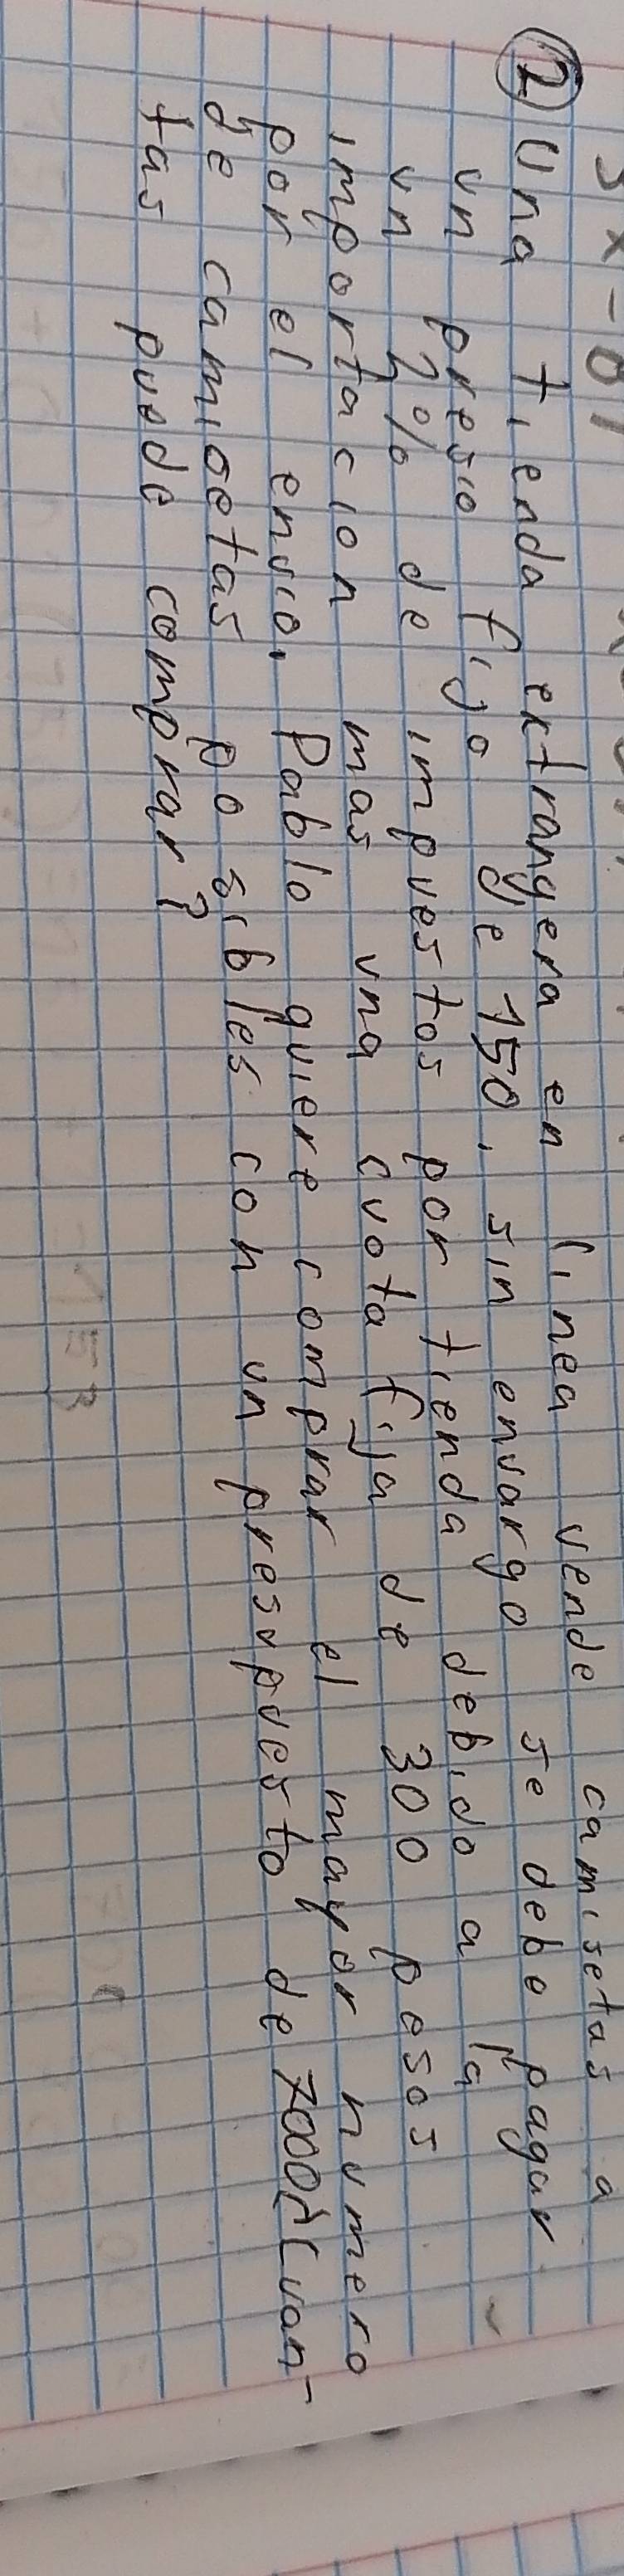 ② Una tienda extrangera en linea vende camisetas a
un presio fijo ge 150. sin envargo se debe pagar
un 2% de impuestos por tienda debido a la
importacion mas una cuota fija de 300 pesos
por el envio. Pablo quiere comprar el mayor numero
ge camisetas posibles con un presupuesto de 7000¿Cuan-
tas puede comprar?